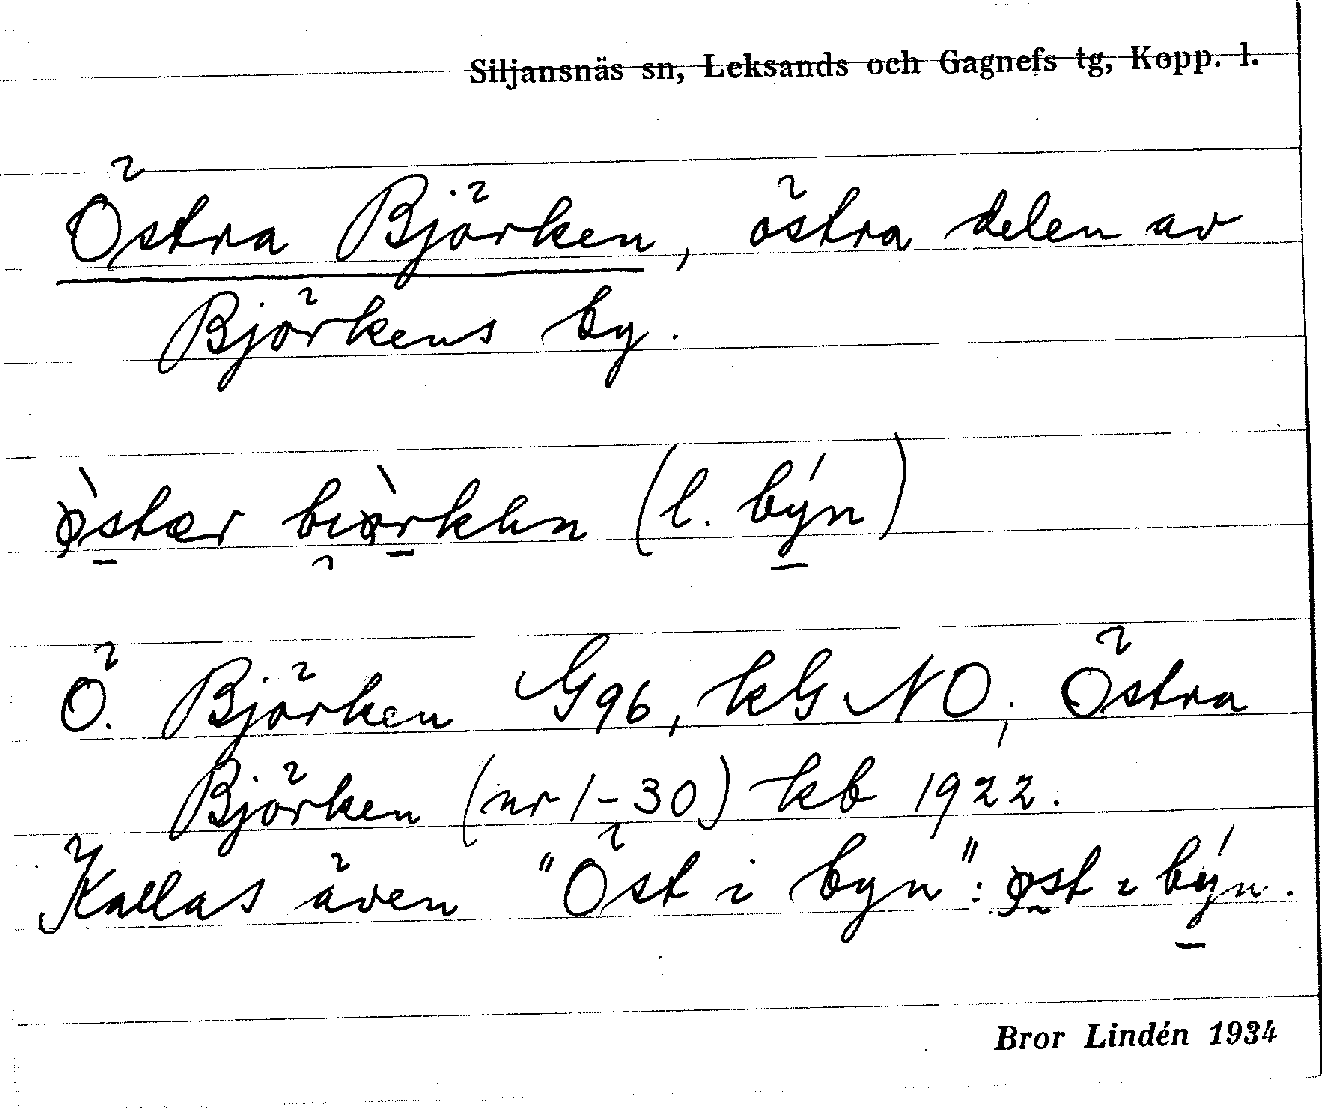 Siljansnäs sn, Leksands och Gagnefs tg, Kopp. l.
Östra Björken, östra delen av
Björkens by.
(l. býn)
Ö. Björken G96, kG NO; Östra
Björken (nr 1-30) kb 1922.
Kallas även "Öst i byn": øst ı býn.
Bror Lindén 1934